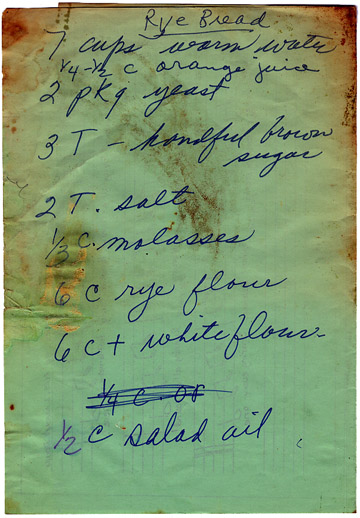 Rye Bread
7 cups warm water
1/4-1/2 c orange juice
2 pkg yeast
3 T - handful brown
sugar
2 T. salt
1/3 c. molasses
6 c rye flour
6 c + white flour
1/4 c or
1/2 c salad oil